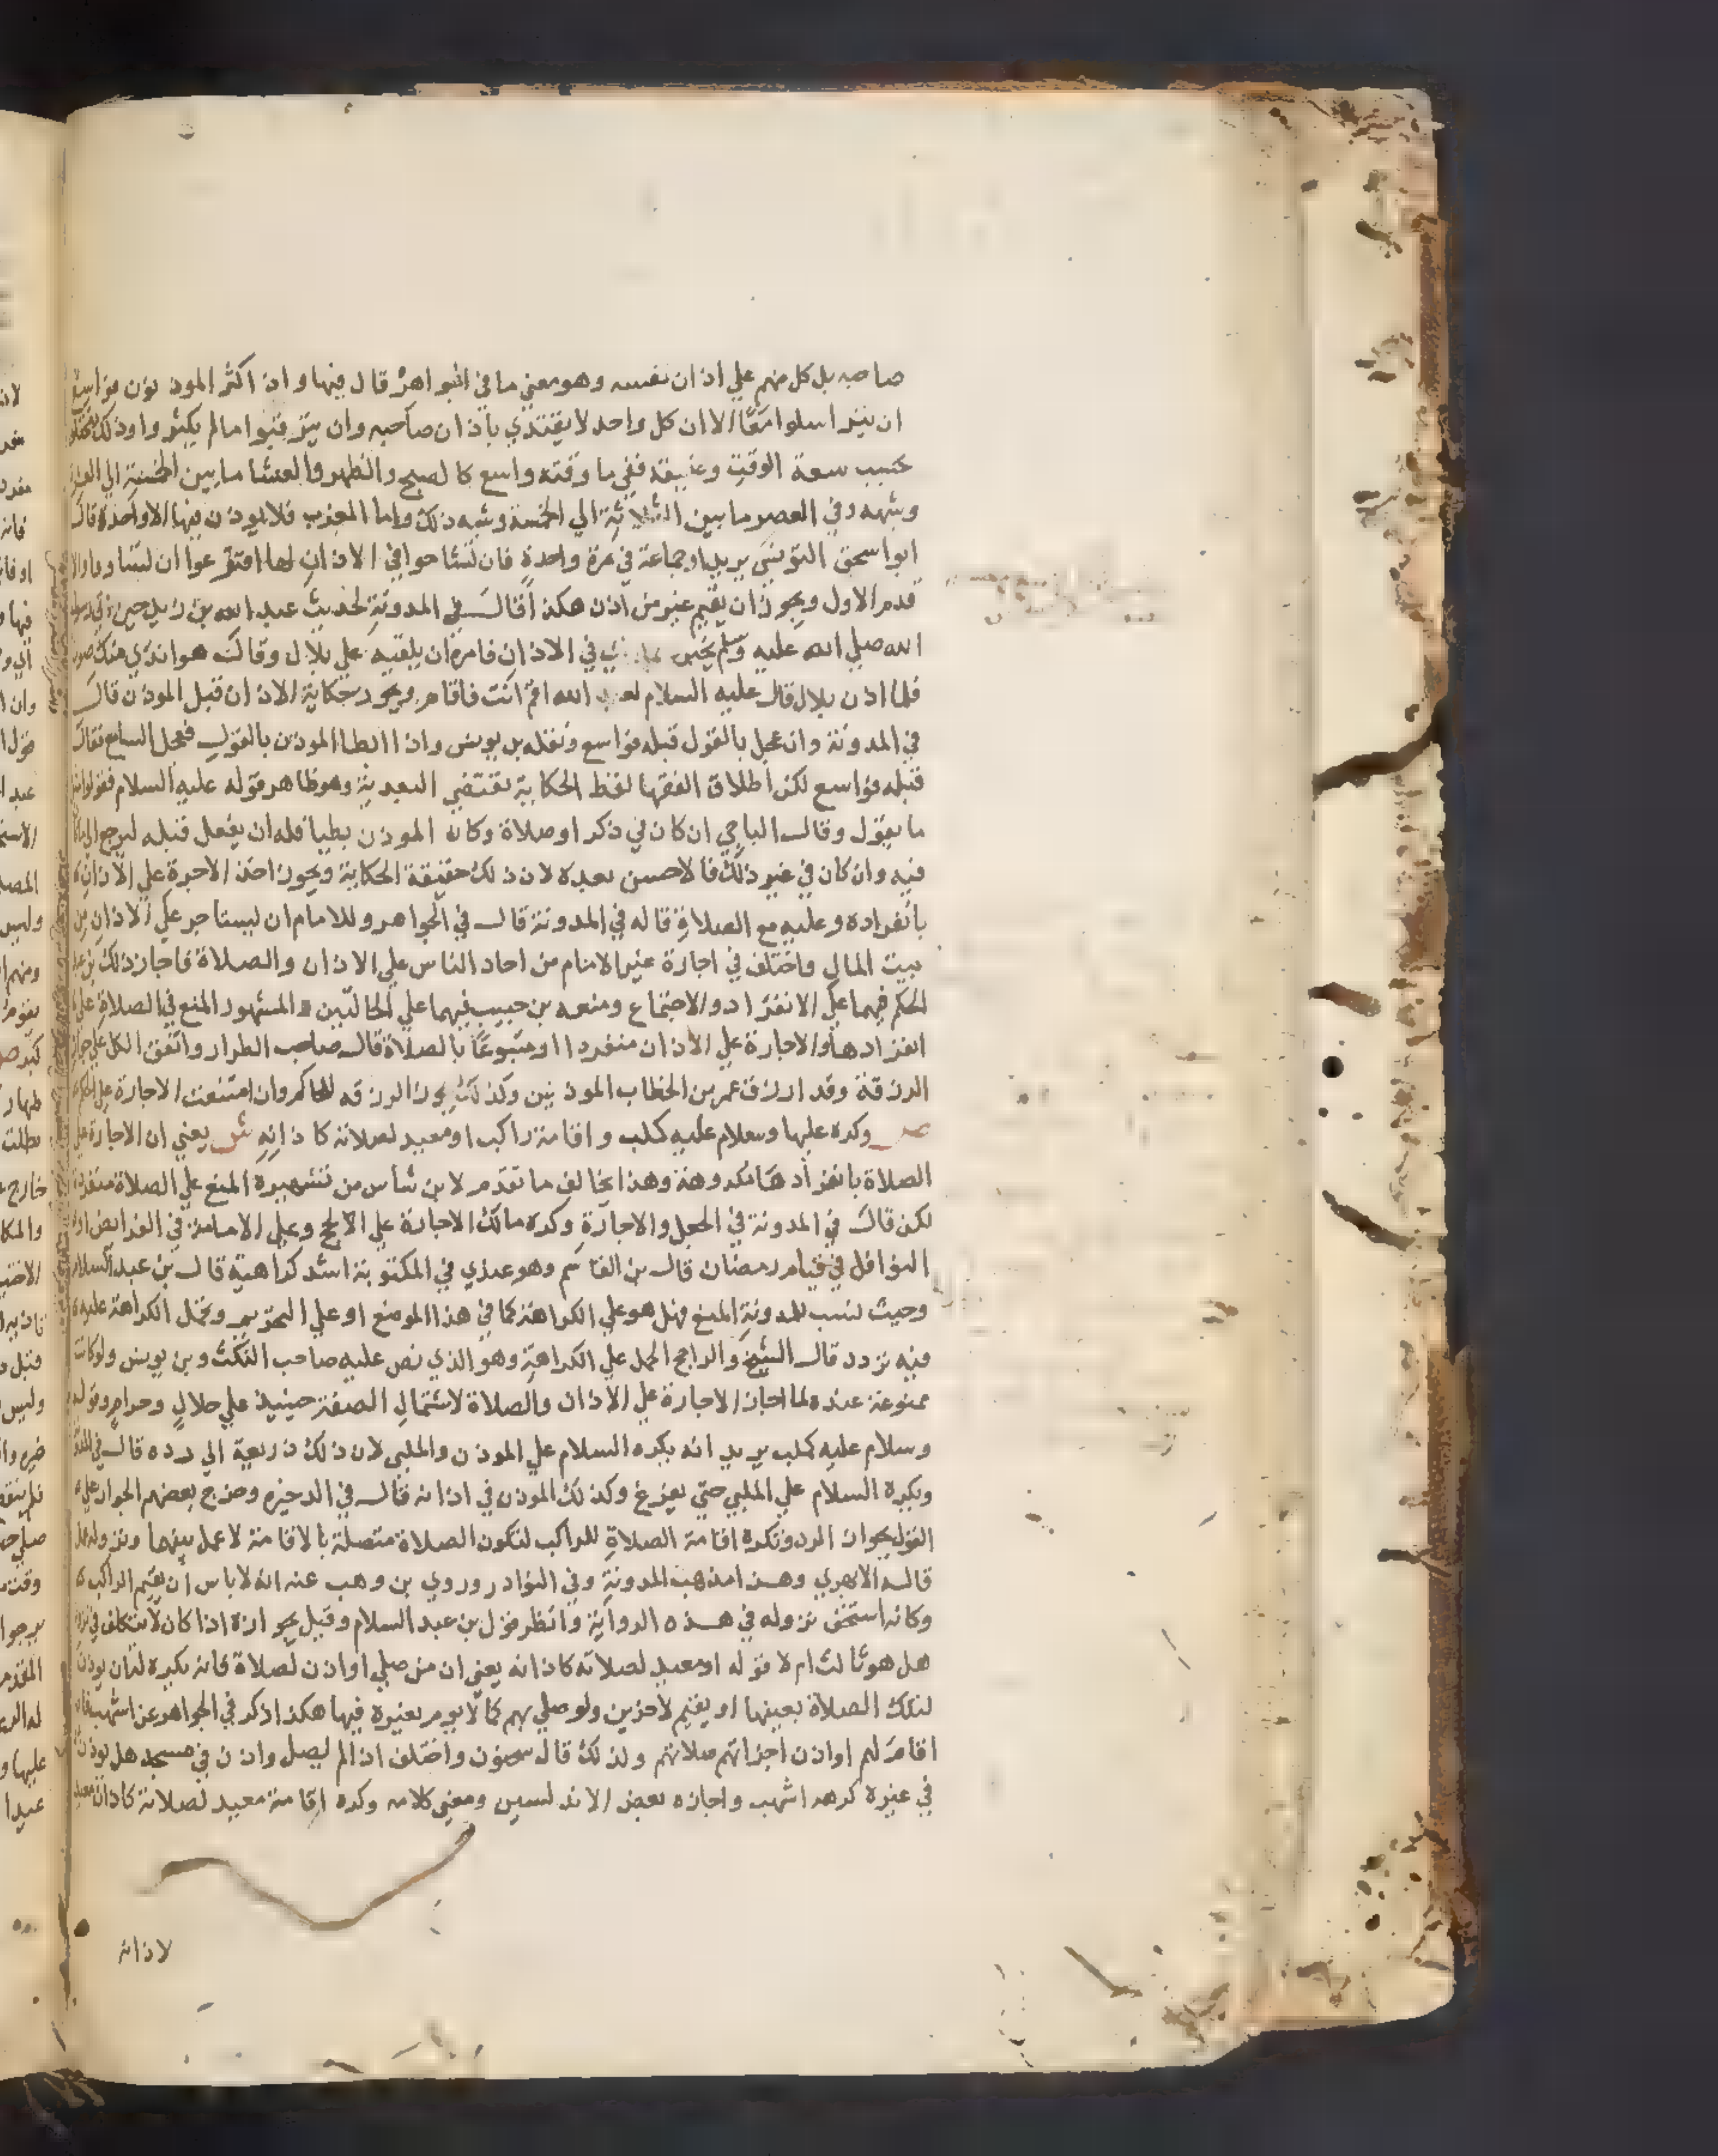 صاحبه بل كل منهم علي اذان نفسه وهو معني ما في الجواهر قال فيها واذا كثر الموذنون فواسع
ان يتراسلوا معًا الا ان كل واحد لا يقتدي باذان صاحبه وان يترتبوا ما لم يكثروا وذلك
بحسب سعة الوقت وضيقه ففي ما وقته واسع كالصبح والظهر والعشا ما بين الخمسة الي العشرة
وشبهه وفي العصر ما بين الثلاثة الي الخمسة وشبه ذلك واما المغرب فلا يوذن فيها الا واحد قال
ابو اسحق التونسي يريد او جماعة في مرة واحدة فان تشاحوا في الاذان لها اقترعوا ان تساووا والا
قدم الاول ويجوز ان يقيم غير من اذن هكذا قال في المدونة لحديث عبد الله بن زيد حين اتي رسول
الله صلي الله عليه وسلم يخبره في الاذان فامره ان يلقيه علي بلال وقال هو اندي منك صوتا
فلما اذن بلال قال عليه السلام لعبد الله اقم انت فاقام ويجوز حكاية الاذان قبل الموذن قال
في المدونة وان عجل بالقول قبله فواسع ونقله بن يونس واذا ابطا الموذن بالقول فعجل السامع فقال
قبله فواسع لكن اطلاق الفقها لفظ الحكاية تقتضي البعدية وهو ظاهر قوله عليه السلام فقولوا مثل
ما يقول وقال الباجي ان كان في ذكر او صلاة وكان الموذن بطيا فله ان يفعل قبله ليرجع الي ما كان
فيه وان كان في غير ذلك فالاحسن بعده لان ذلك حقيقة الحكاية ويجوز اخذ الاجرة علي الاذان
بانفراده وعليه مع الصلاة قاله في المدونة قال في الجواهر وللامام ان يستاجر علي الاذان من
بيت المال واختلف في اجارة غير الامام من احاد الناس علي الاذان والصلاة فاجاز ذلك بن عبد
الحكم فيهما علي الانفراد والاجتماع ومنعه بن حبيب فيهما علي الحالتين والمشهور المنع في الصلاة علي
انفرادها والاجارة علي الاذان منفردا او متبوعًا بالصلاة قال صاحب الطراز واتفق الكل علي جواز
الرزقة وقد ارزق عمر بن الخطاب الموذنين وكذلك يجوز الرزقه للحاكم وان امتنعت الاجارة علي الحكم
صـ وكره عليها وسلام عليه كملب واقامة راكب او معيد لصلاته كاذانه ش يعني ان الاجارة علي
الصلاة بانفرادها مكروهة وهذا يخالف ما تقدم لابن شاس من تشهيره المنع علي الصلاة منفردة
لكن قال في المدونة في الجعل والاجارة وكره مالك الاجارة علي الحج وعلي الامامة في الفرايض او
النوافل في قيام رمضان قال بن القاسم وهو عندي في المكتوبة اشد كراهية قال بن عبد السلام
وحيث نسب للمدونة المنع فهل هو علي الكراهة كما في هذا الموضع او علي التحريم وتحمل الكراهة عليه
فيه تردد قال الشيخ والراجح الحمل علي الكراهة وهو الذي نص عليه صاحب النكت وبن يونس ولو كانت
ممنوعة عنده لما اجاز الاجارة علي الاذان والصلاة لاشتمال الصفقة حينيذ علي حلال وحرام وقوله
وسلام عليه كملب يريد انه يكره السلام علي الموذن والملبي لان ذلك ذريعة الي رده قال في المدونة
ويكره السلام علي الملبي حتي يفرغ وكذلك الموذن في اذانه قال في الذخيره وخرج بعضهم الجواز علي
القول بجواز الرد وتكره اقامة الصلاة للراكب لتكون الصلاة متصلة بالاقامة لا عمل بينهما ونزوله عمل
قاله الابهري وهذا مذهب المدونة وفي النوادر وروي بن وهب عنه انه لا باس ان يقيم الراكب
وكانه استخف نزوله في هذه الرواية وانظر قول بن عبد السلام وقيل يجوازه اذا كان لا يتكلف في نزوله
هل هو ثالث ام لا قوله او معيد لصلاته كاذانه يعني ان من صلي او اذن لصلاة فانه يكره له ان يوذن
لتلك الصلاة بعينها او يقيم لاخرين ولو صلي بهم كما لا يوم بغيره فيها هكذا ذكر في الجواهر عن اشهب فان
اقام لهم او اذن اجزاتهم صلاتهم ولذلك قال سحنون واختلف اذا لم يصل واذن في مسجد هل يوذن
في غيره كرهه اشهب واجازه بعض الاندلسين ومعني كلامه وكره اقامة معيد لصلاته كاذان معيد
لاذانه